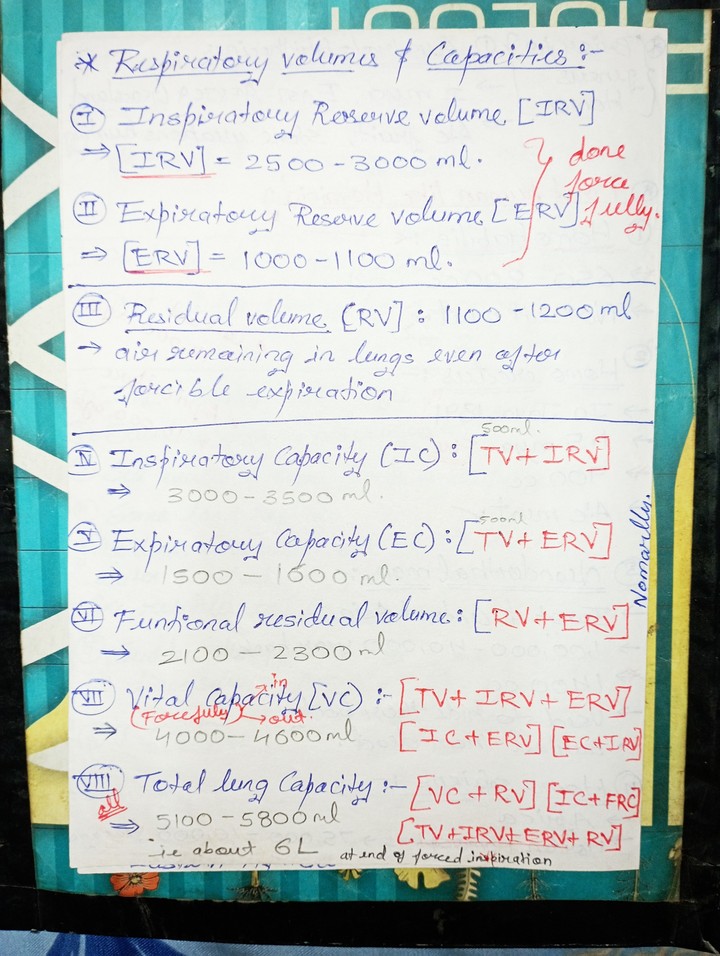 * Respiratory volumes & Capacities :-
I Inspiratory Reserve volume [IRV]
⇒ [IRV] = 2500 - 3000 ml.
done force fully.
II Expiratory Reserve volume [ERV]
⇒ [ERV] = 1000 - 1100 ml.
III Residual volume [RV] : 1100 - 1200 ml
→ air remaining in lungs even after
forcible expiration
500ml.
IV Inspiratory Capacity (IC) : [TV + IRV]
⇒ 3000 - 3500 ml.
500ml
V Expiratory Capacity (EC) : [TV + ERV]
⇒ 1500 - 1600 ml.
Nomarlly.
VI Funtional residual volume : [RV + ERV]
⇒ 2100 - 2300 ml
VII Vital capacity [VC) :- [TV + IRV + ERV]
(Forcefully) → in → out.
⇒ 4000 - 4600 ml [IC + ERV] [EC + IRV]
VIII Total lung Capacity :- [VC + RV] [IC + FRC]
all
⇒ 5100 - 5800 ml [TV + IRV + ERV + RV]
ie about 6L at end of forced inspiration